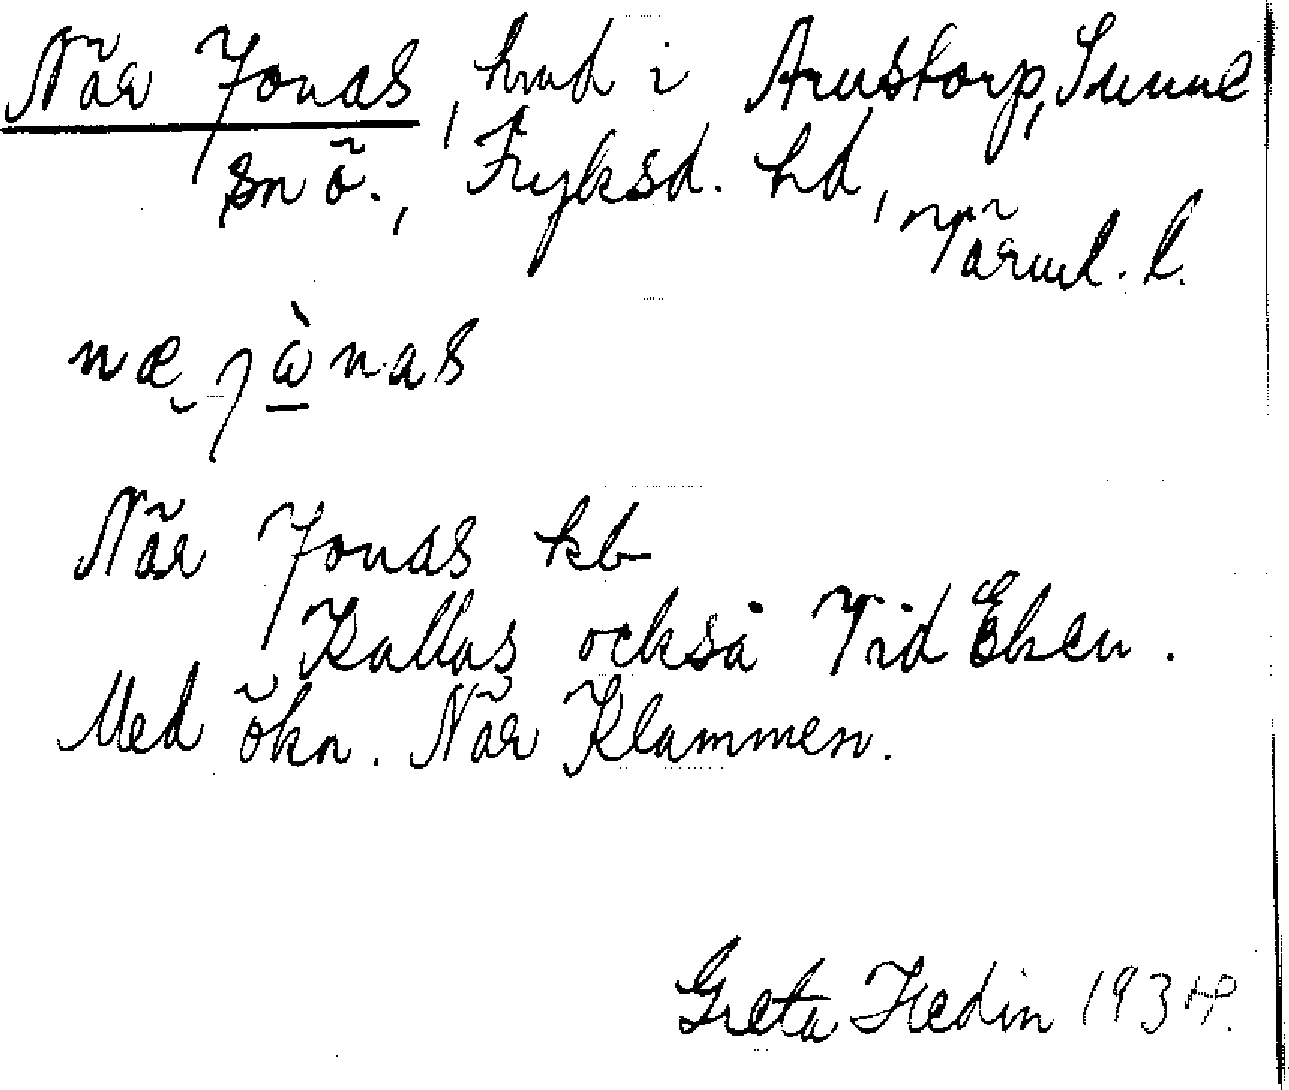 När Jonas, hmd i Arnstorp, Sunne
sn ö., Fryksd. hd,
Värml. l.
næ jὼnas
När Jonas kb
Kallas också Vid Eken.
Med ökn. När Klammen.
Greta Hedin 1934.